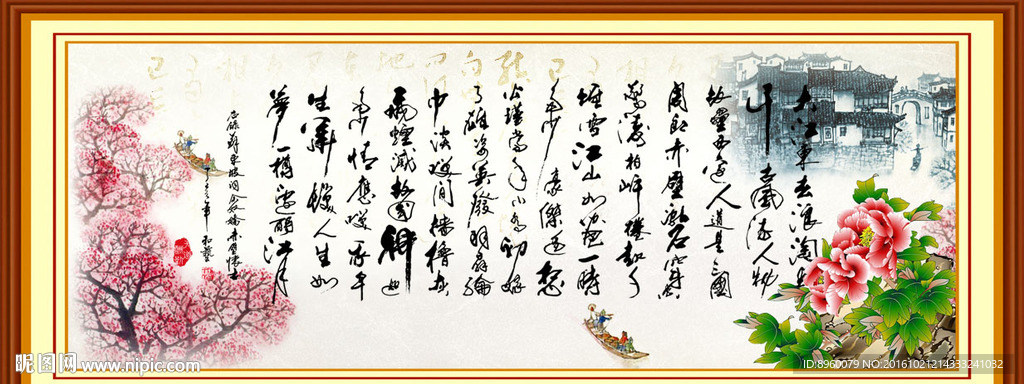 大江東去浪淘盡
千古風流人物
故壘西邊人道是三國
周郎赤壁亂石穿空
驚濤拍岸捲起千
堆雪江山如畫一時
多少豪傑遙想
公瑾當年小喬初嫁
了雄姿英發羽扇綸
巾談笑間檣櫓灰
飛煙滅故國神
多情應笑我早
生華髮人生如
夢一樽還酹江月
錄蘇東坡詞念奴嬌赤壁懷古
昵图网 www.nipic.com
ID:8960079 NO:20161021214333241032